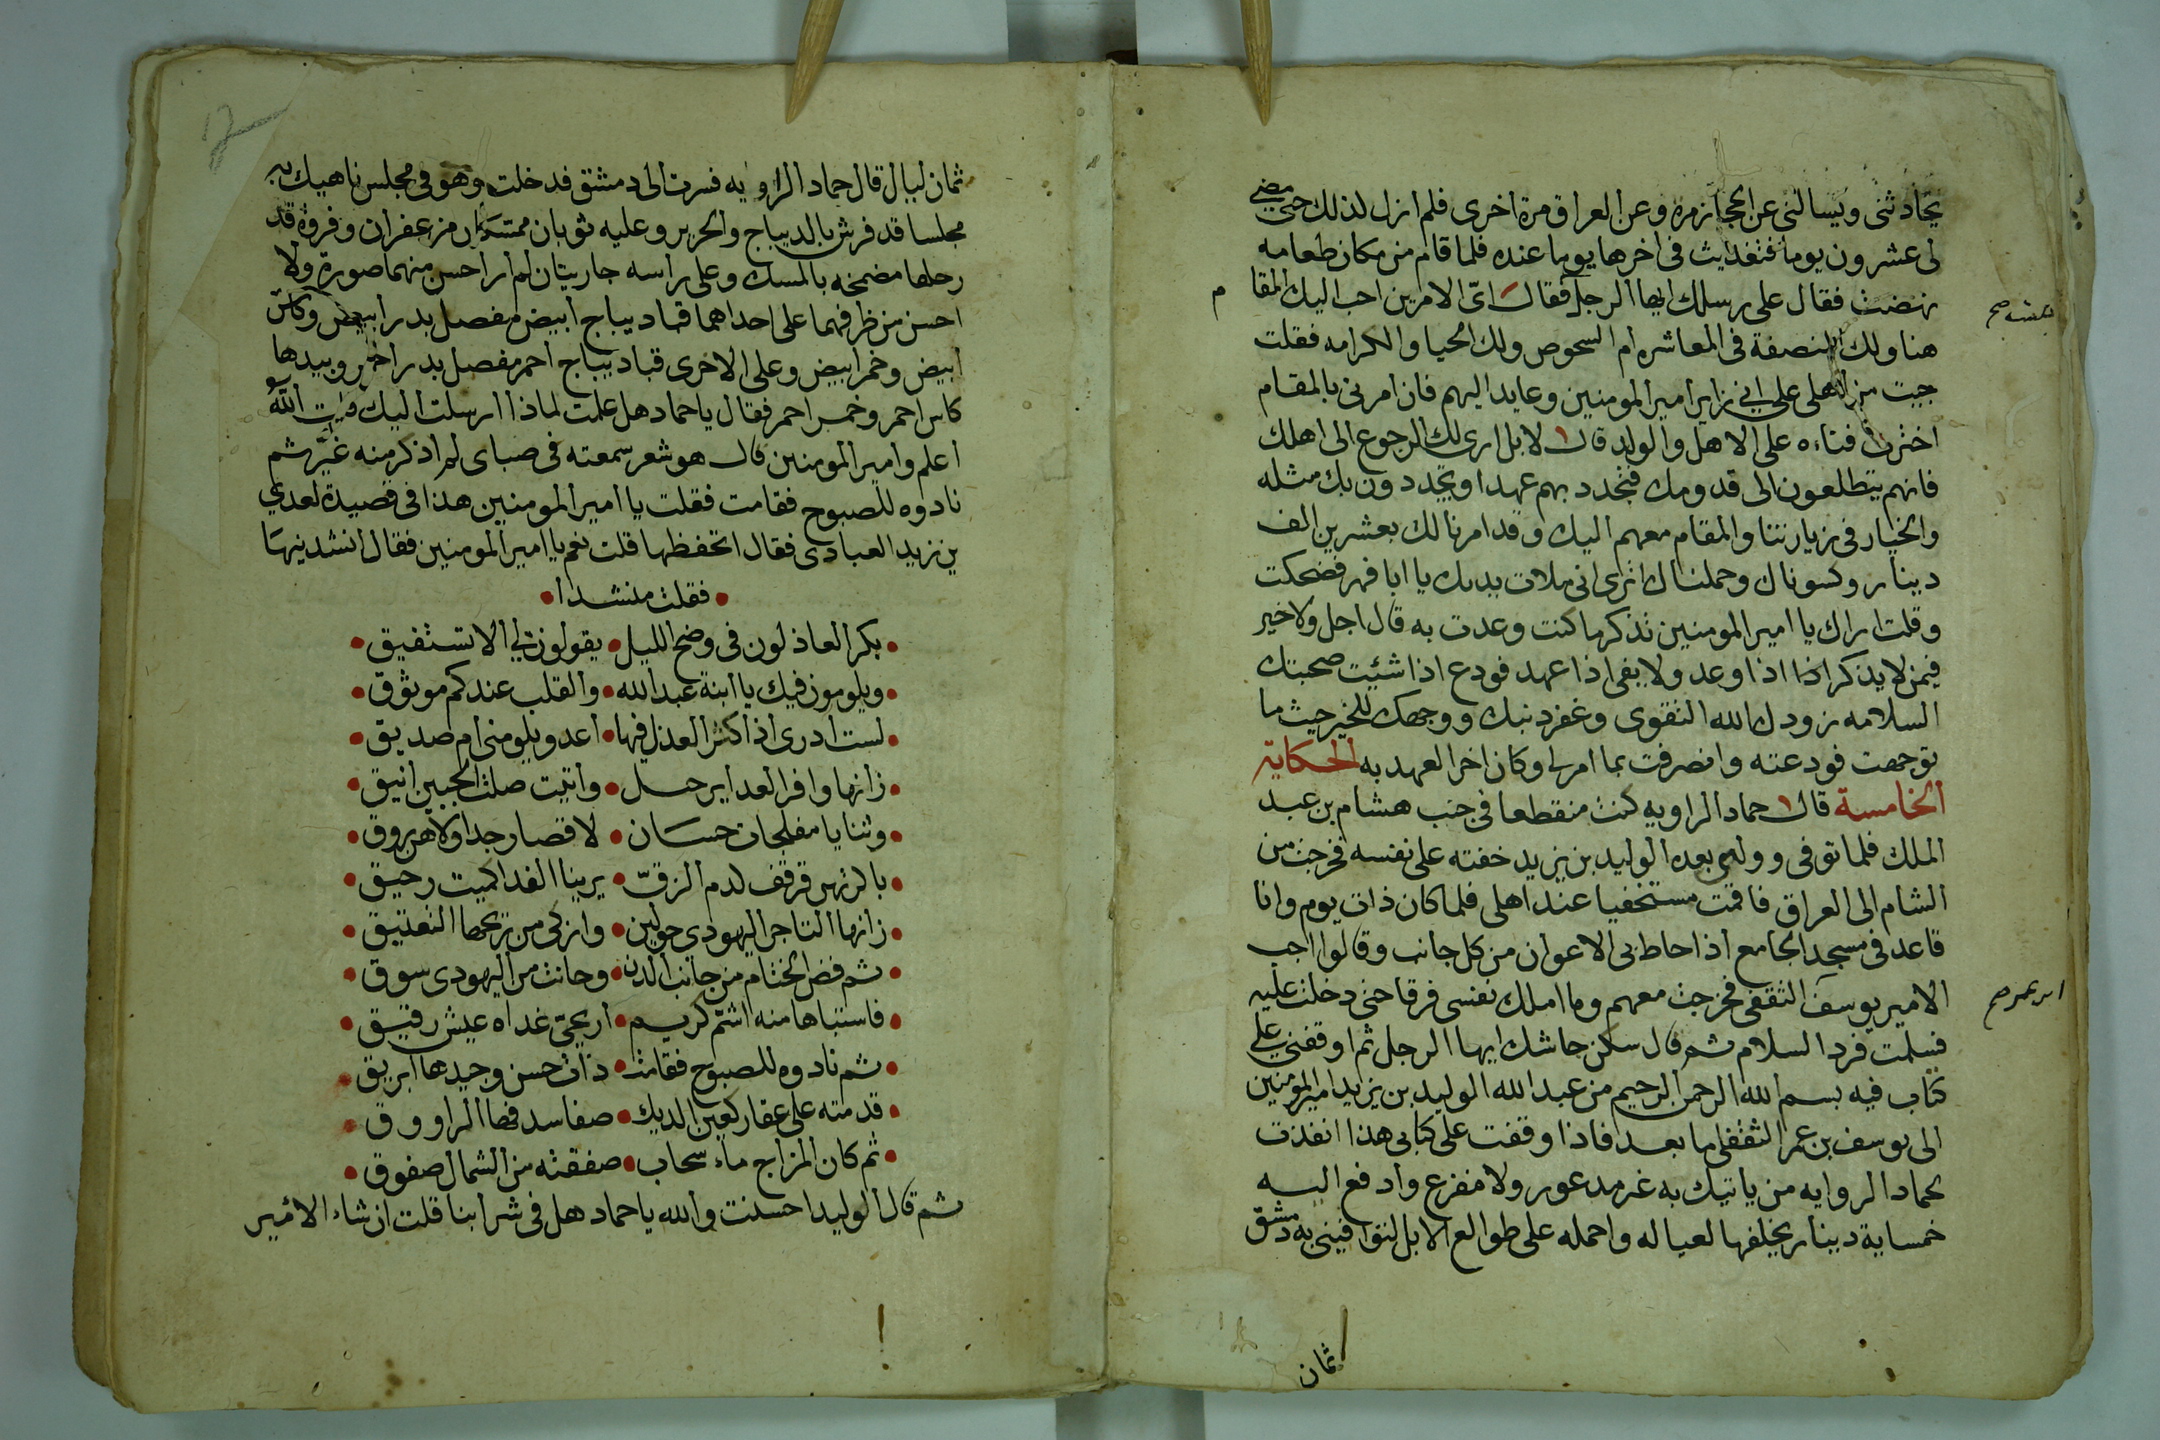 يحادثنى ويسالنى عن الحجاز مرة وعن العراق مرة اخرى فلم ازل لذلك حتى مضى
لى عشرون يوما فتغديت فى اخرها يوما عنده فلما قام من مكان طعامه
نهضت فقال على رسلك ايها الرجل فقال اىّ الامرين احب اليك المقام
هنا ولك النصفة فى المعاشره ام الشخوص ولك الحيا والكرامه فقلت
جيت من اهلى على انى زاير امير المومنين وعايد اليهم فان امرنى بالمقام
اخترت فناءه على الاهل والولد قال لا بل ارى لك الرجوع الى اهلك
فانهم يتطلعون الى قدومك فتجدد بهم عهدا ويجددون بك مثله
والخيار فى زيارتنا والمقام معهم اليك وقد امرنا لك بعشرين الف
دينار وكسوناك وحملناك اترى انى ملات يديك يا ابا فهر فضحكت
وقلت اراك يا امير المومنين تذكر ما كنت وعدت به قال اجل ولا خير
فيمن لا يذكر اذا وعد ولا يفى اذا عهد فودع اذا شئيت صحبتك
السلامه زودك الله التقوى وغفر ذنبك ووجهك للخير حيث ما
توجهت فودعته وانصرفت بما امر لى وكان اخر العهد به الحكاية
الخامسة قال حماد الراويه كنت منقطعا فى جنب هشام بن عبد
الملك فلما توفى وولى بعده الوليد بن يزيد خفته على نفسه فخرجت من
الشام الى العراق فاقمت مستخفيا عند اهلى فلما كان ذات يوم وانا
قاعد فى مسجد الجامع اذ احاط بى الاعوان من كل جانب وقالوا اجب
الامير يوسف الثقفى فخرجت معهم وما املك نفسى فرقا حتى دخلت عليه
فسلمت فرد السلام ثم قال سكن جاشك ايها الرجل ثم اوقفنى على
كتاب فيه بسم الله الرحمن الرحيم من عبد الله الوليد بن يزيد امير المومنين
الى يوسف بن عمر الثقفى اما بعد فاذا وقفت على كتابى هذا انفذت
لحماد الروايه من ياتيك به غير مدعور ولا مفزع وادفع اليه
خمساية دينار يخلفها لعياله واحمله على طوالع الابل لتوافينى به دمشق
ثمان
ثمان ليال قال حماد الراويه فسرت الى دمشق فدخلت وهو فى مجلس ناهيك به
مجلسا قد فرش بالديباج والحرير وعليه ثوبان ممتسكان من عفران وفروة قد
رحلها مضمخه بالمسك وعلى راسه جاريتان لم ار احسن منهما صورة ولا
احسن من ظرافهما على احداهما قبا ديباج ابيض مفصل بدر ابيض وكاس
ابيض وخمر ابيض وعلى الاخرى قبا ديباج احمر مفصل بدر احمر وبيدها
كاس احمر وخمر احمر فقال يا حماد هل علمت لماذا ارسلت اليك قلت الله
اعلم وامير المومنين قال هو شعر سمعته فى صباى لم اذكر منه غير ثم
نادوه للصبوح فقامت فقلت يا امير المومنين هذا فى قصيدة لعدي
بن زيد العبادى فقال اتحفظها قلت نعم يا امير المومنين فقال انشدنيها
فقلت منشدا
بكر العاذلون فى وضح الليل يقولون لي الا تستفيق
ويلومون فيك يا ابنة عبد الله والقلب عندكم موثوق
لست ادرى اذ اكثر العذل فيها اعدو يلومنى ام صديق
زانها وافر الغداير جل واتيت صلت الجبين انيق
وثنايا مفلجات حسان لا قصار جدا ولا هن روق
زانها التاجر اليهودى حولين وازكى من ريحها التعتيق
ثم فض الختام من جانب الدن وحانت من اليهودى سوق
فاستباها منه اشم كريم اريحى غداه عيش رقيق
ثم نادوه للصبوح فقامت ذات حسن وجيدها ابريق
قدمته على عقار كعين الديك صفا سدفها الراووق
ثم كان المزاج ماء سحاب صفقته من الشمال صفوق
ثم قال الوليد احسنت والله يا حماد هل فى شرابنا قلت ان شاء الامير